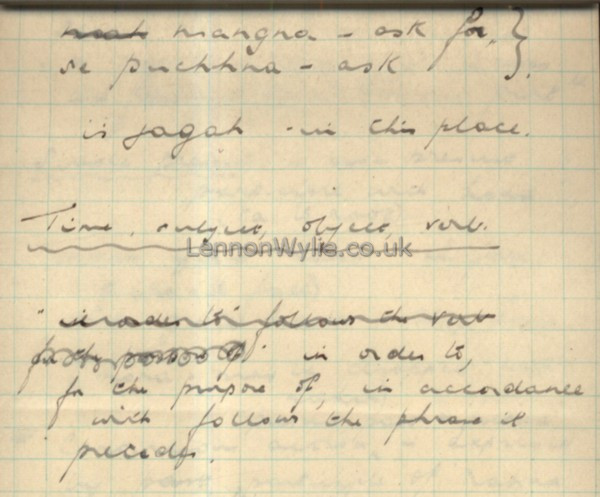 mangna - ask for, }
se puchhna - ask }.
is jagah - in this place.
Time, subject, object, verb.
LennonWylie.co.uk
"in order to" follows the verb
for the purpose of" in order to,
for the purpose of, in accordance
with follows the phrase it
precedes.